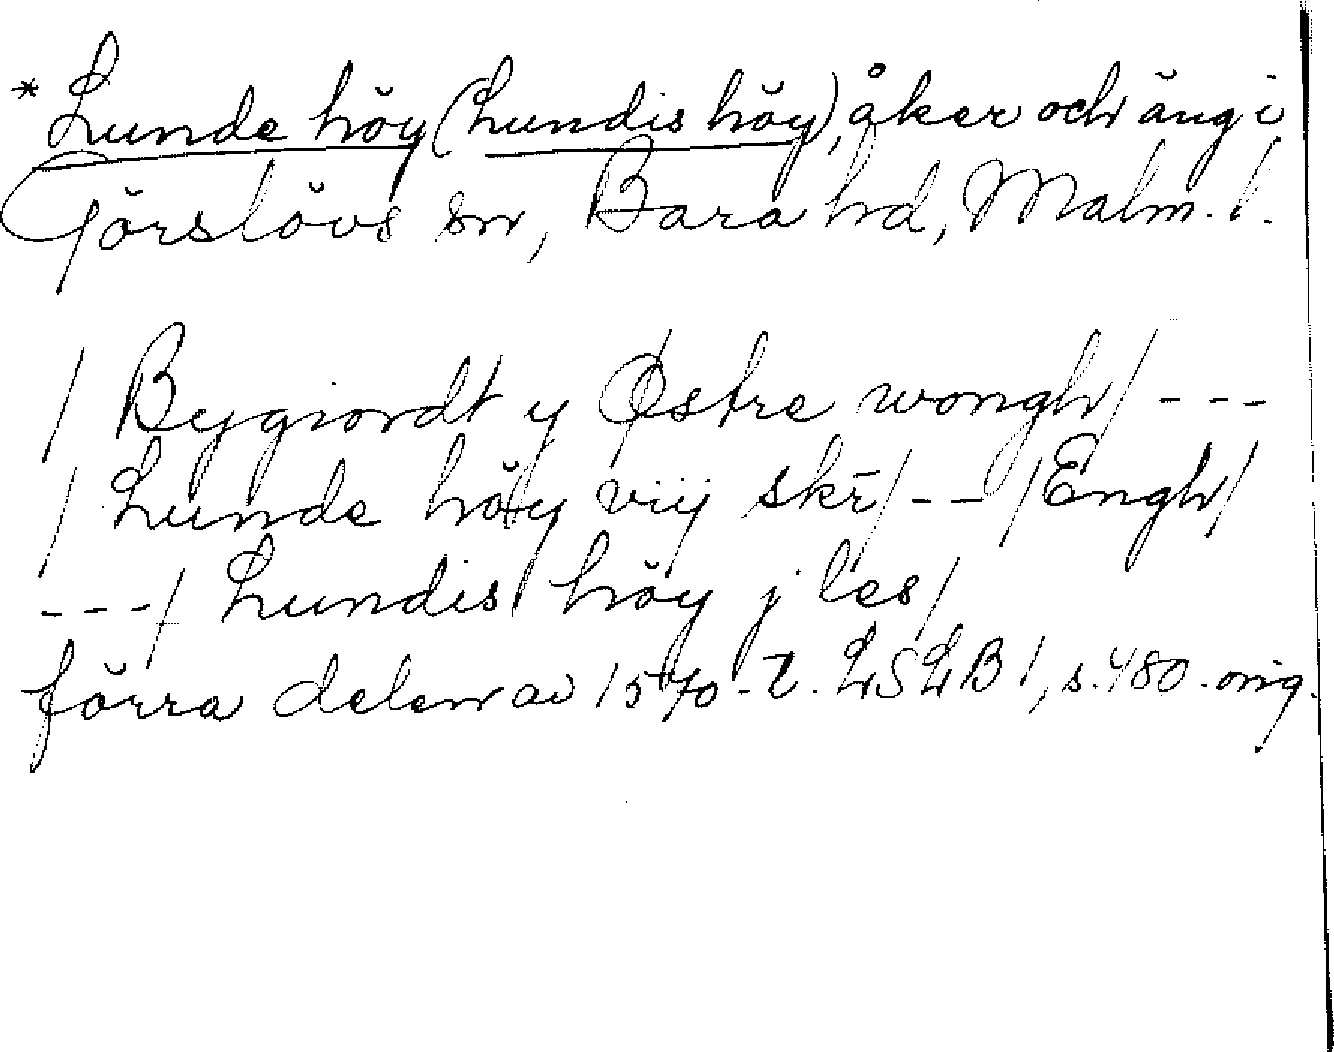 * Lunde höy (Lundis höy), åker och äng i
Görslövs sn, Bara hd, Malm. l.
/ Bygiordt y Østre wongh / ---
/ Lunde höy vij skr̄ / -- / Engh /
--- / Lundis höy j les /
förra delen av 1570-t. LSLB 1, s. 480. orig.